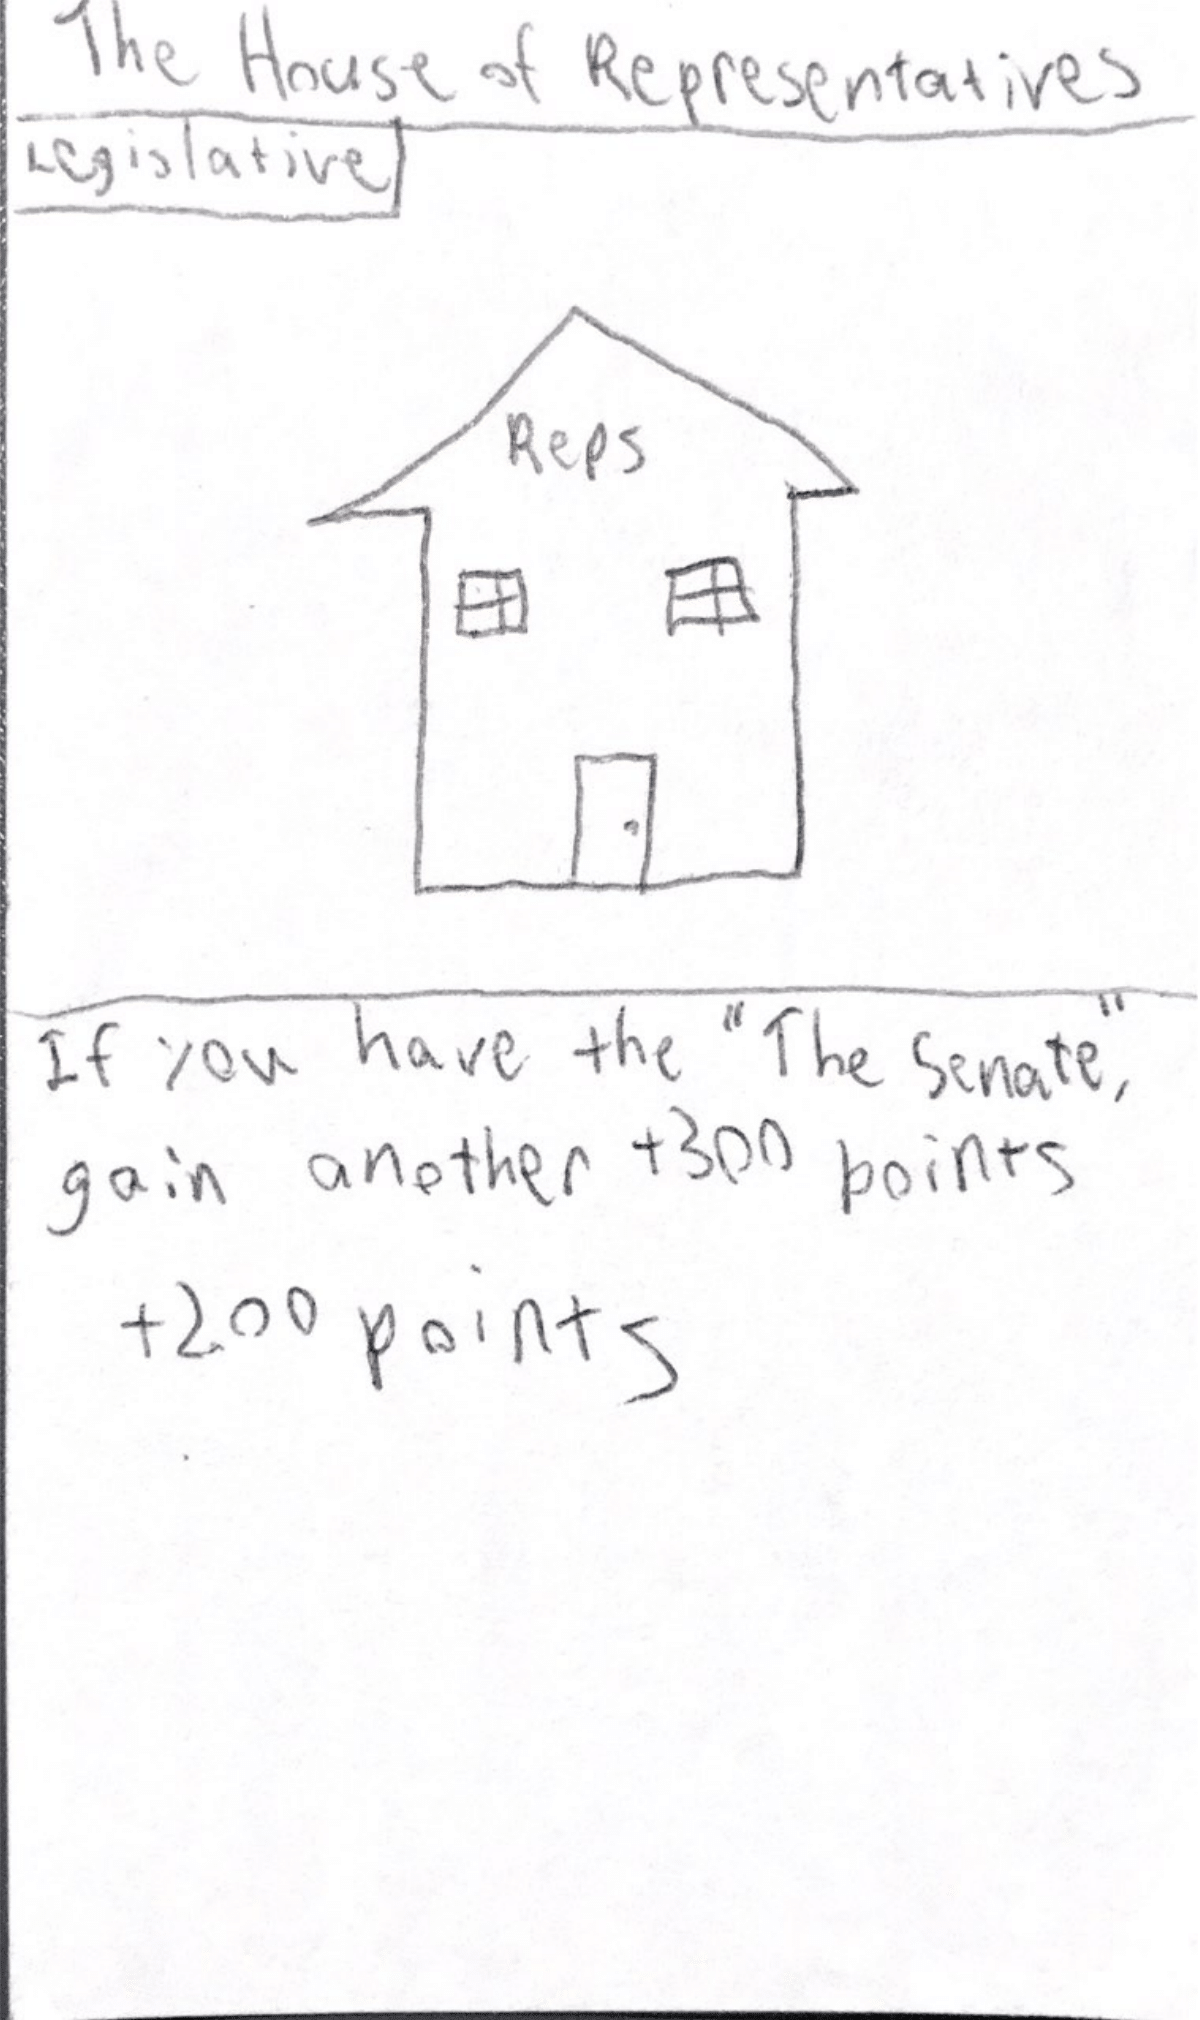 The House of Representatives
Legislative
Reps
If you have the "The Senate",
gain another +300 points
+200 points